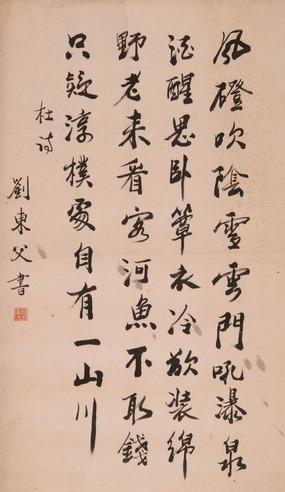 風磴吹陰雪雲門吼瀑泉
酒醒思臥簟衣冷欲装綿
野老来看客河魚不取錢
只疑淳樸處自有一山川
杜詩
劉東父書